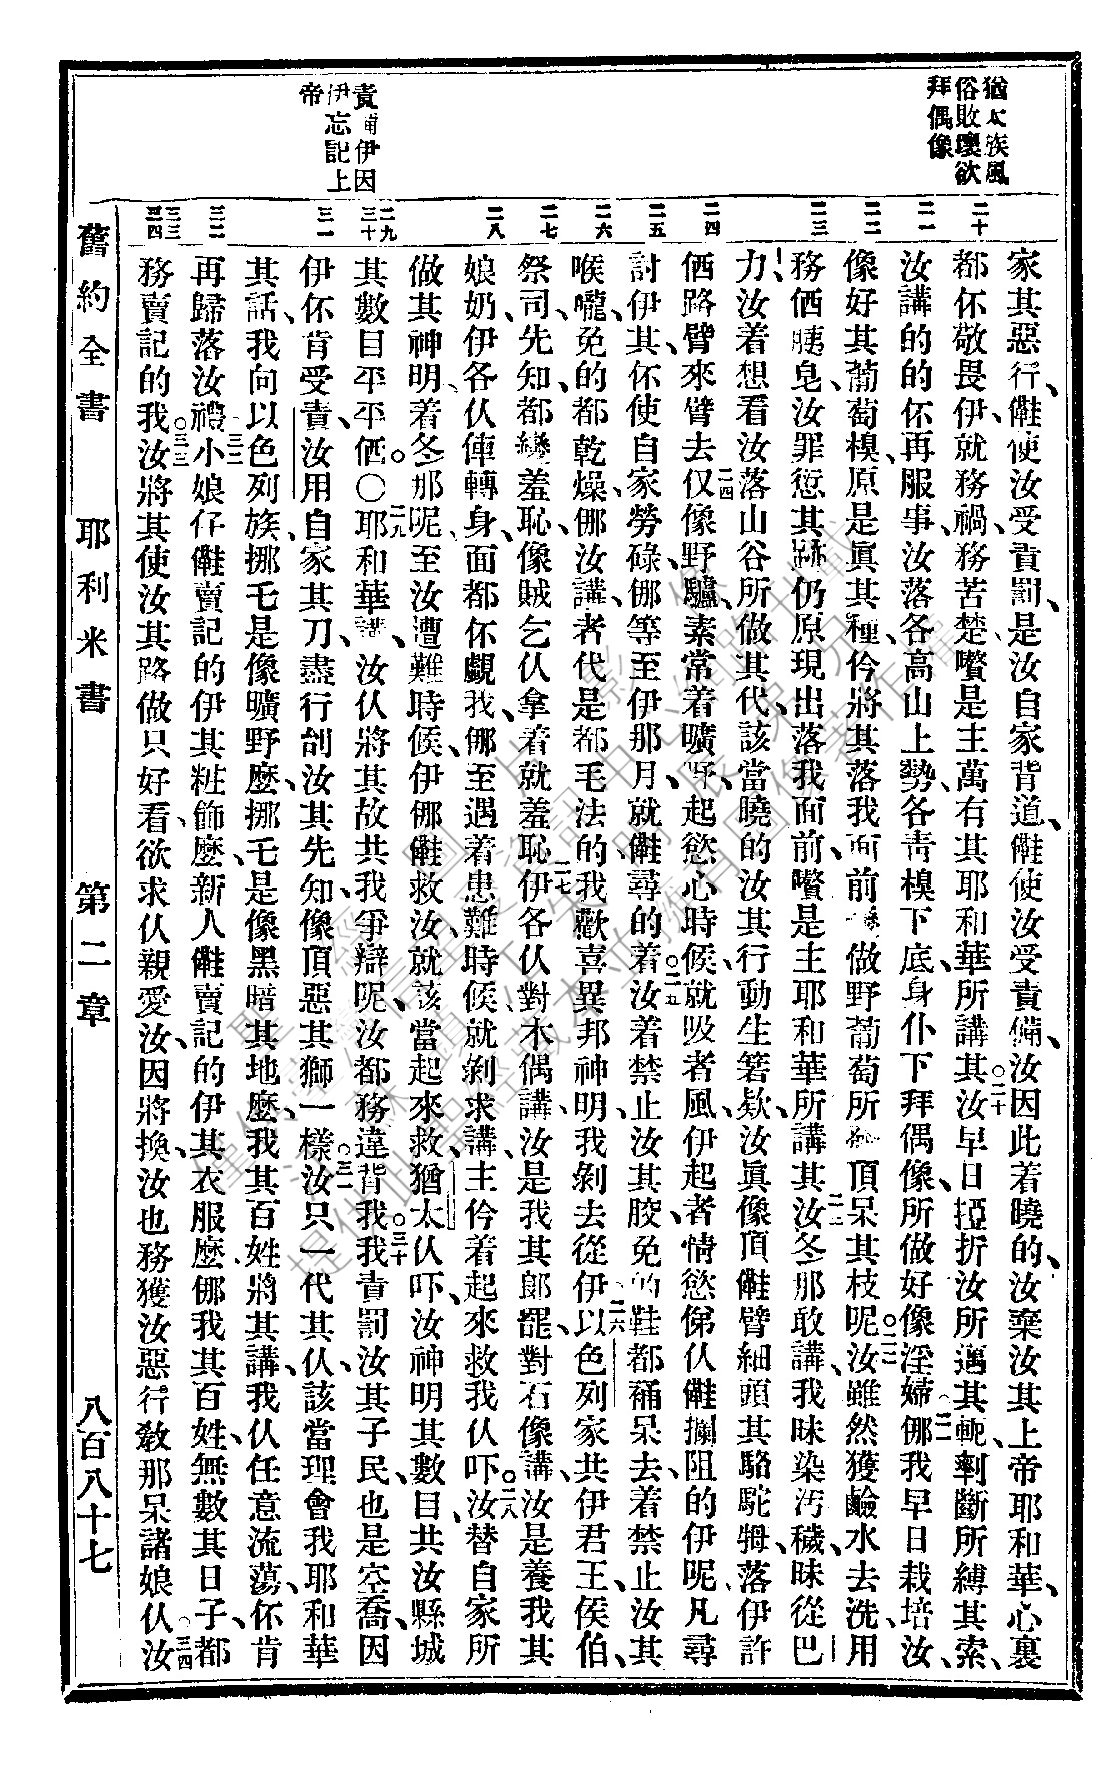 猶太族風
俗敗壞欲
拜偶像
責備伊因
伊忘記上
帝
二十
二一
二二
二三
二四
二五
二六
二七
二八
二九
三十
三一
三二
三三
三四
家其惡行、儺使汝受責罰、是汝自家背道、儺使汝受責備、汝因此着曉的、汝棄汝其上帝耶和華、心裏
都伓敬畏伊、就務禍、務苦楚、嚽是主萬有其耶和華所講其。二十汝早日掗折汝所邁其軛、剩斷所縛其索、
汝講的的伓再服事、汝落各高山上勢、各靑模下底、身仆下拜偶像、所做好像淫婦。二一挪我早日栽培汝、
像好其葡萄模、原是眞其種、伶將其落我面前、做野葡萄所頂呆其枝呢。二二汝雖然獲鹼水去洗、用
務価胰皂、汝罪愆其跡仍原現出落我面前、嚽是主耶和華所講其。二三汝冬那敢講、我昧染汚穢、昧從巴
力、汝着想看汝落山谷所做其代、該當曉的汝其行動生箸欸、汝眞像頂儺臂細頭其駱駝牳、落伊許
価路臂來臂去。二四仅像野驢、素常着曠野、起慾心時候、就吸者風、伊起者情慾、俤仫儺攔阻的伊呢、凡尋
討伊其、伓使自家勞碌、挪等至伊那月、就儺尋的着。二五汝着禁止汝其骹、免的鞋都褅呆去、着禁止汝其
喉嚨、免的都乾燥、挪汝講、者代是都乇法的、我歡喜異邦神明、我剝去從伊。二六以色列家共伊君王、侯伯、
祭司、先知、都纔羞恥、像賊乞仫拿着就羞恥。二七伊各仫對木偶講、汝是我其郎罷、對石像講、汝是養我其
娘奶、伊各仫俥轉身、面都伓覷我、挪至遇着患難時候、就剝求講、主伶着起來救我仫吓。二八汝替自家所
做其神明着冬那呢、至汝遭難時候、伊挪儺救汝、就該當起來救、猶太仫吓、汝神明其數目、共汝縣城
其數目平平価。〇二九耶和華講、汝仫將其故共我爭辯呢、汝都務違背我。三十我責罰汝其子民、也是空喬、因
伊伓肯受責、汝用自家其刀、盡行刣汝其先知、像頂惡其獅一樣。三一汝只一代其仫、該當理會我耶和華
其話、我向以色列族、挪乇是像曠野麽、挪乇是像黑暗其地麽、我其百姓將其講、我仫任意流蕩、伓肯
再歸落汝禮。三二小娘仔儺賣記的伊其粧飾麽、新人儺賣記的伊其衣服麽、挪我其百姓、無數其日子、都
務賣記的我。三三汝將其使汝其路做只好看、欲求仫親愛汝、因將換、汝也務獲汝惡行敎那呆諸娘仫。三四汝
舊約全書　耶利米書　第二章　八百八十七